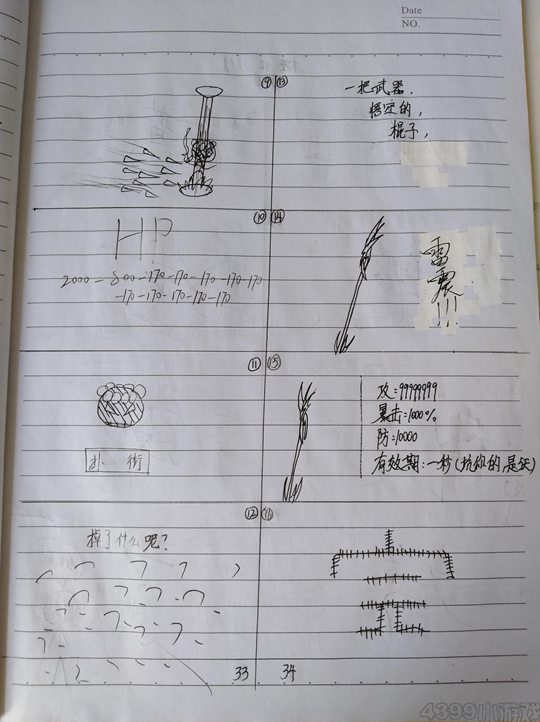 Date
NO.
⑨
⑩
HP
2000-800-170-170-170-170-170
-170-170-170-170-170
⑪
扑 街
⑫
掉了什么呢?
33
⑬
一把武器,
悟空的,
棍子,
⑭
雷
震
!!!
⑮
攻:99999999
暴击:1000%
防:10000
有效期:一秒
⑯
34
4399小游戏